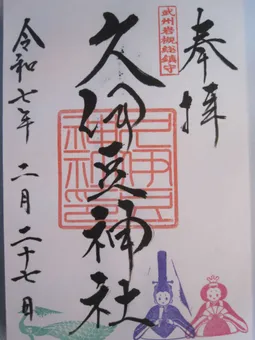 奉拝
武州岩槻総鎮守
久伊豆神社
令和七年 二月二十七日